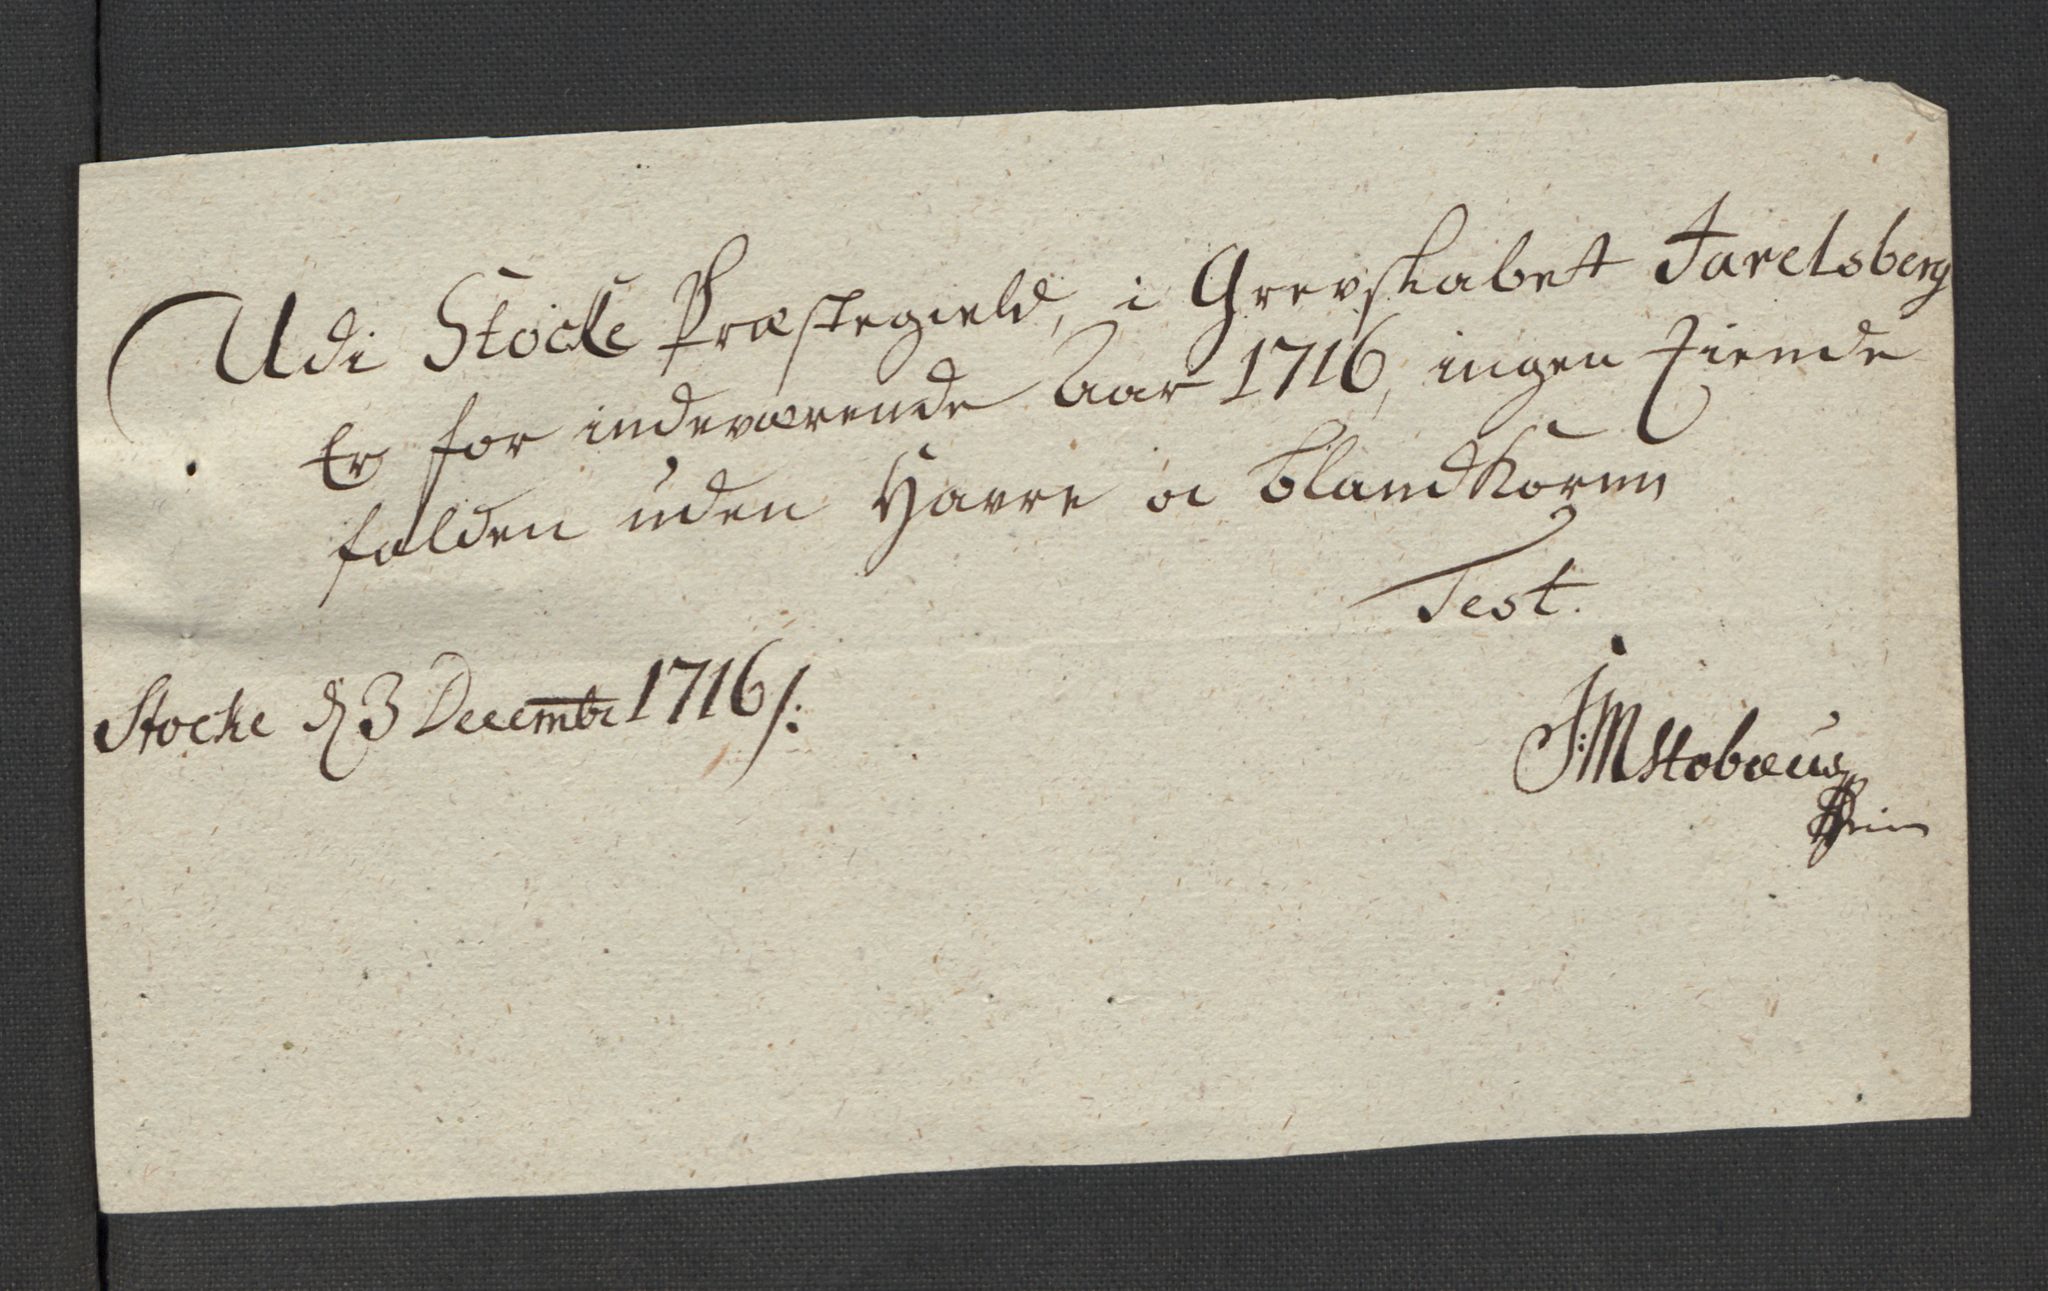 Udi Stocke Præstegield, i Grevskabet Jarelsberg
Er for indeværende Aar 1716, ingen Tiende
falden uden Havre oc blandKorn
Test.
Stocke d 3 Decembr 1716/:
J:M Stobæus